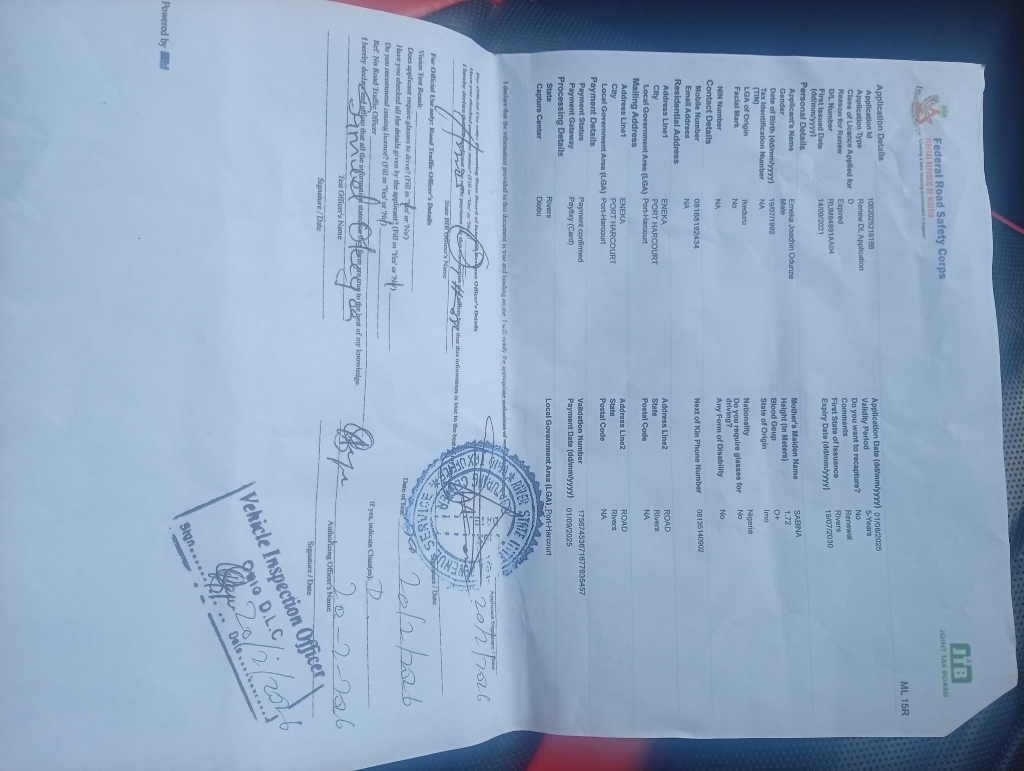 Federal Road Safety Corps
FEDERAL REPUBLIC OF NIGERIA
JTB
JOINT TAX BOARD
ML 15R
Application Details
Application Id
Application Date (dd/mm/yyyy) 01/08/2025
Application Type Renew DL Application
Validity Period 5 Years
Class of Licence Applied for D
Do you want to recapture? No
Reason for Renew Expired
Comments Renewal
D/L Number
First State of Issuance Rivers
First Issued Date (dd/mm/yyyy) 14/09/2021
Expiry Date (dd/mm/yyyy) 19/07/2030
Personal Details
Applicant's Name Emeka Joachin Odunze
Mother's Maiden Name SABINA
Gender Male
Height (In Meters) 1.72
Date of Birth (dd/mm/yyyy) 19/07/1992
Blood Goup O+
Tax Identification Number (TIN) NA
State of Origin Imo
LGA of Origin Ikeduru
Nationality Nigeria
Facial Mark No
Do you require glasses for driving? No
NIN Number NA
Any Form of Disability No
Contact Details
Mobile Number 08168192434
Next of Kin Phone Number 08135140902
Email Address NA
Residential Address
Address Line1 ENEKA
Address Line2 ROAD
City PORT HARCOURT
State Rivers
Local Government Area (LGA) Port-Harcourt
Postal Code NA
Mailing Address
Address Line1 ENEKA
Address Line2 ROAD
City PORT HARCOURT
State Rivers
Local Government Area (LGA) Port-Harcourt
Postal Code NA
Payment Details
Payment Status Payment confirmed
Validation Number
Payment Gateway Payfixy (Card)
Payment Date (dd/mm/yyyy) 01/09/2025
Processing Details
State Rivers
Local Government Area (LGA) Port-Harcourt
Capture Center Diobu
I declare that the information provided in the document is true and binding on me. I will notify the appropriate authorities of
Applicant Signature / Date
20/2/2026
State BIR Officer's Name
Signature / Date
20/2/2026
For Official Use Only: Road Traffic Officer's Details
Vision Test Result
Date of Test
Does applicant require glasses to drive? (Fill in 'Yes' or 'No')
Have you checked all the details given by the applicant? (Fill in 'Yes' or 'No')
Do you recommend issuing licence? (Fill in 'Yes' or 'No')
If yes, indicate Class(es) D
Ref. No Road Traffic Officer
I hereby declare and affirm that all the information stated on this form are true to the best of my knowledge.
Test Officer's Name
Authorizing Officer's Name
20-2-2026
Signature / Date
Signature / Date
Vehicle Inspection Officer
Ogio D.L.C
Sign
Date
20/2/2026
Powered by